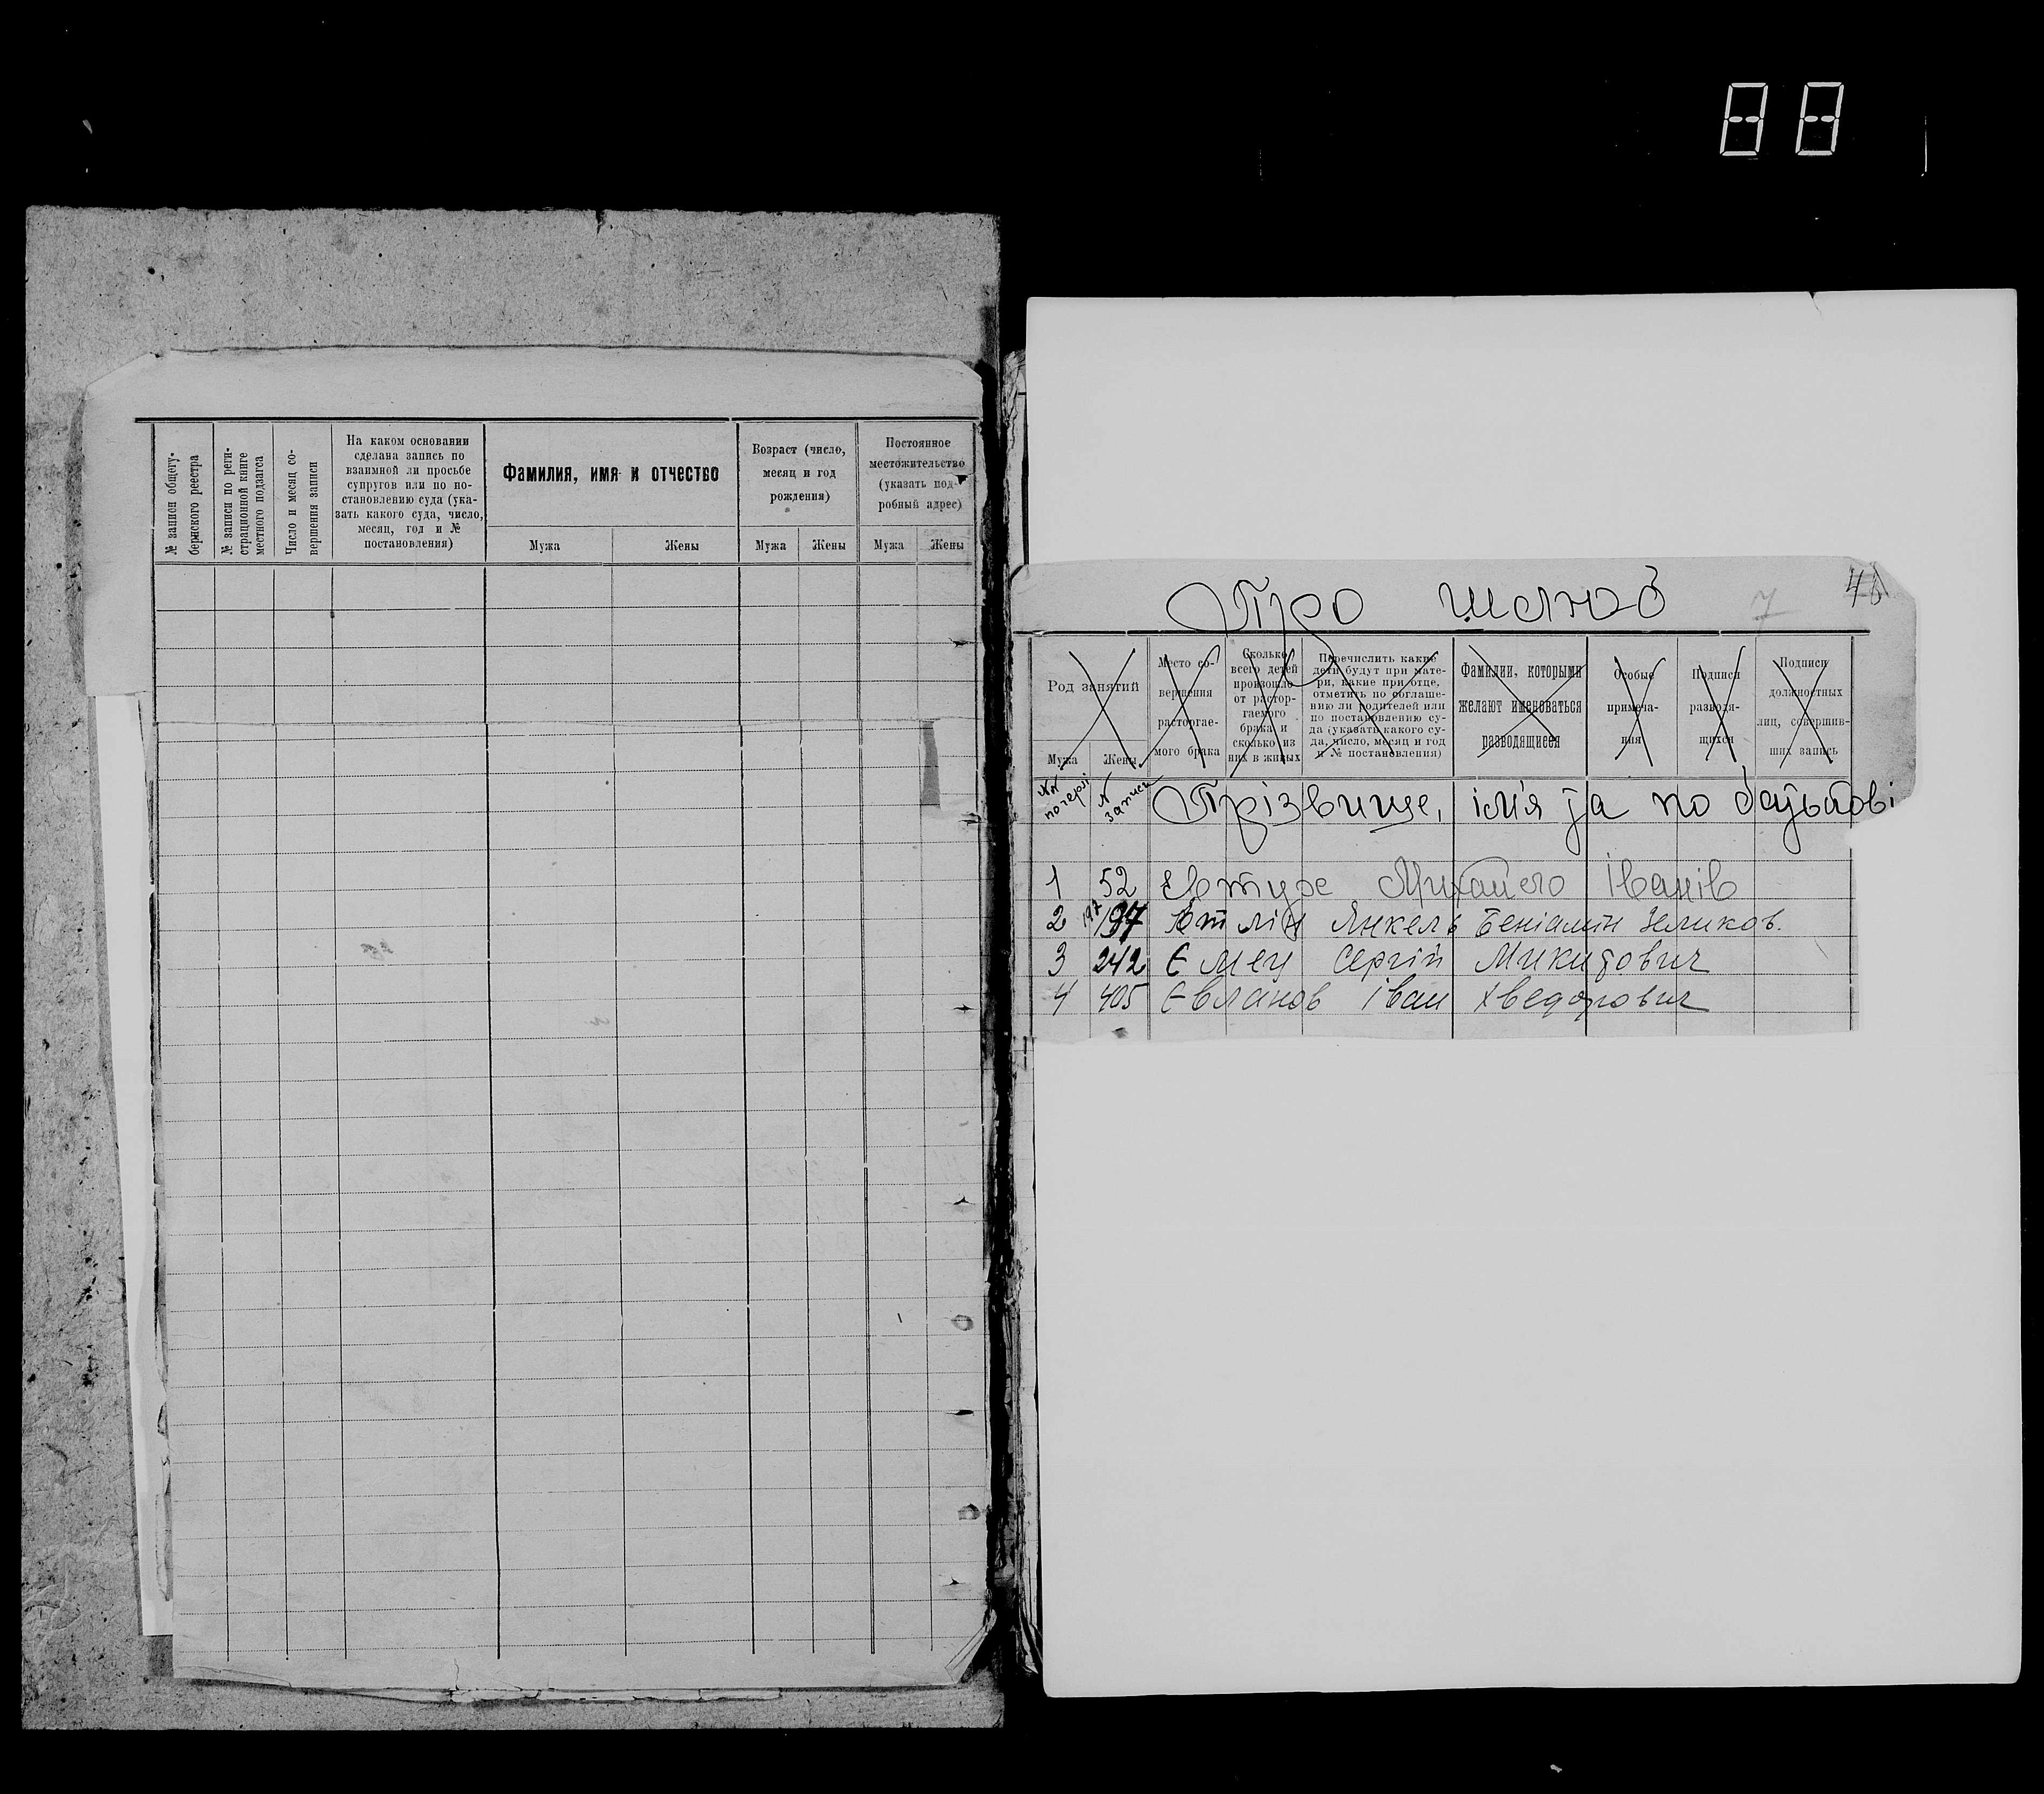 № записи общегу-
бернского реестра
№ записи по реги-
страционной книге
местного подзагса
Число и месяц со-
вершения записи
На каком основании
сделана запись по
взаимной ли просьбе
супругов или по по-
становлению суда (ука-
зать какого суда, число,
месяц, год и №
постановления)
Фамилия, имя и отчество
Мужа Жены
Возраст (число,
месяц и год
рождения)
Мужа Жены
Постоянное
местожительство
(указать под-
робный адрес)
Мужа Жены
Про шлюб 7
Род занятий
Мужа Жены
Место со-
вершения
расторгае-
мого брака
Сколько
всего детей
произошло
от растор-
гаемого
брака и
сколько из
них в живых
Перечислить какие
дети будут при мате-
ри, какие при отце,
отметить по соглаше-
нию ли родителей или
по постановлению су-
да (указать какого су-
да, число, месяц и год
и № постановления)
Фамилии, которыми
желают именоваться
разводящиеся
Особые
примеча-
ния
Подписи
разводя-
щихся
Подписи
должностных
лиц, совершив-
ших запись
№№ по черзі № записи Прізвище, ім'я та по батькові
1 52 Михайло Іванів
2 197 Янкель Беніамін Зеликов.
3 242 Ємец Сергій Микитович
4 405 Євланов Іван Хведорович